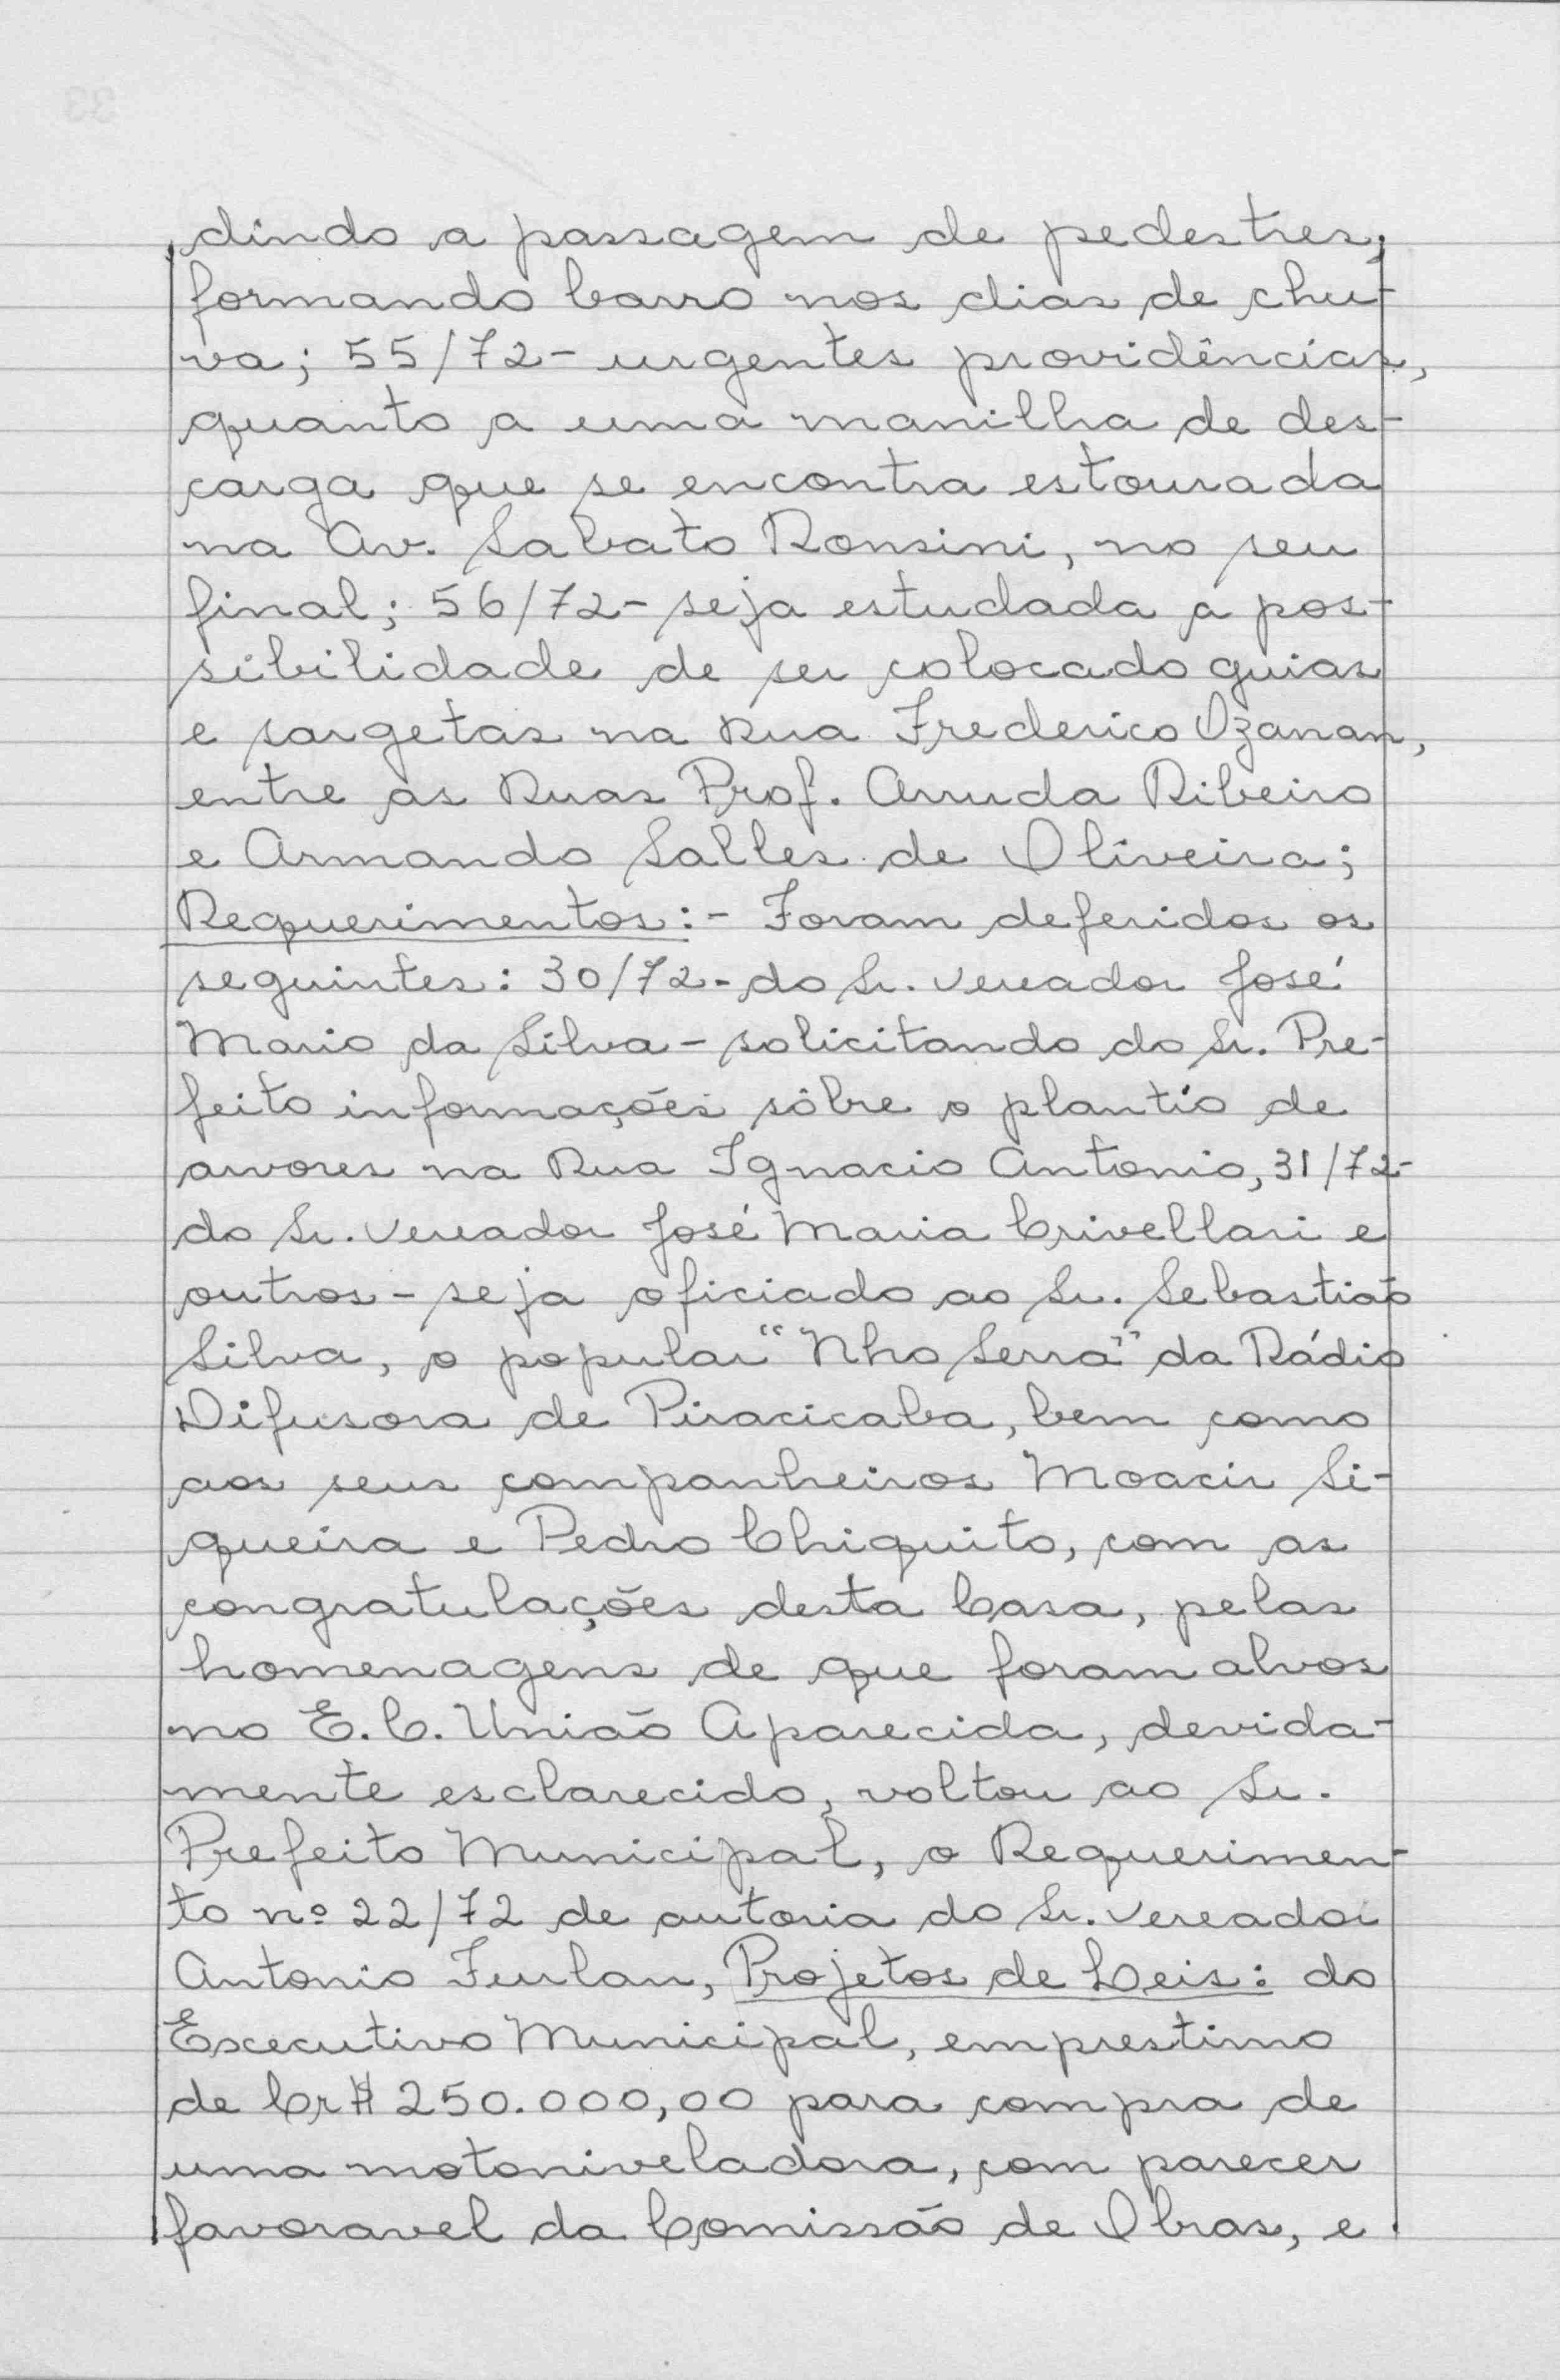 dindo a passagem de pedestres,
formando barro nos dias de chu-
va; 55/72- urgentes providências,
quanto a uma manilha de des-
carga que se encontra estourada
na Av. Sabato Ronsini, no seu
final; 56/72- seja estudada a pos-
sibilidade de ser colocado guias
e sargetas na Rua Frederico Ozanan,
entre as Ruas Prof. Arruda Ribeiro
e Armando Salles de Oliveira;
Requerimentos:- Foram deferidos os
seguintes: 30/72- do Sr. vereador José
Mario da Silva - solicitando do Sr. Pre-
feito informações sôbre o plantio de
arvores na Rua Ignacio Antonio, 31/72-
do Sr. vereador José Maria Crivellari e
outros - seja oficiado ao Sr. Sebastião
Silva, o popular "Nho Serra" da Rádio
Difusora de Piracicaba, bem como
aos seus companheiros Moacir Si-
queira e Pedro Chiquito, com as
congratulações desta Casa, pelas
homenagens de que foram alvos
no E.C. União Aparecida, devida-
mente esclarecido, voltou ao Sr.
Prefeito Municipal, o Requerimen-
to nº 22/72 de autoria do Sr. vereador
Antonio Furlan, Projetos de Leis: do
Executivo Municipal, emprestimo
de Cr$ 250.000,00 para compra de
uma motoniveladora, com parecer
favoravel da Comissão de Obras, e